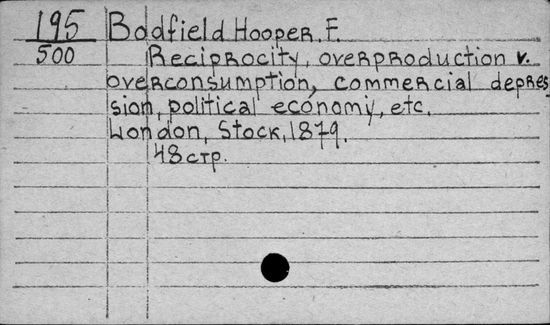 195 Bodfield Hooper, F.
500 Reciprocity, overproduction v.
overconsumption, commercial depres
sion, political economy, etc.
London, Stock, 1879.
48 стр.